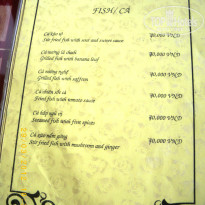 FISH/ CÁ
Cá kho tộ
Stir fried fish with sour and sweet sauce
70,000 VND
Cá nướng lá chuối
Grilled fish with banana leaf
70,000 VND
Cá nướng nghệ
Grilled fish with saffron
70,000 VND
Cá chiên sốt cà
Fried fish with tomato sauce
70,000 VND
Cá hấp ngũ vị
Steamed fish with five spices
70,000 VND
Cá xào nấm gừng
Stir fried fish with mushroom and ginger
70,000 VND